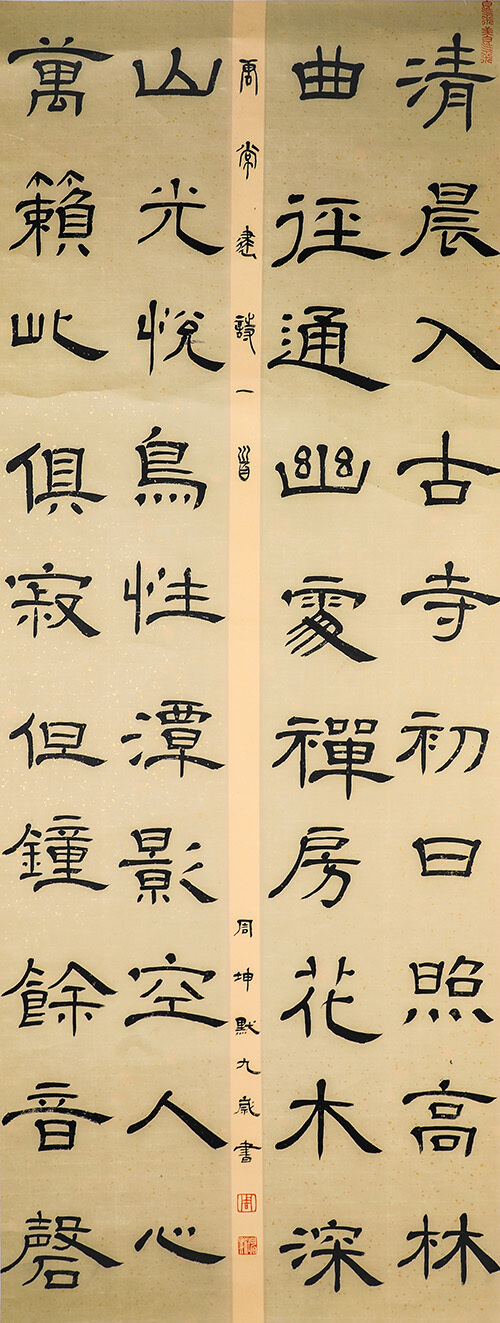 清晨入古寺初日照高林
曲徑通幽處禪房花木深
唐常建詩一首
周坤默九歲書
周
山光悅鳥性潭影空人心
萬籟此俱寂但鐘餘音磬